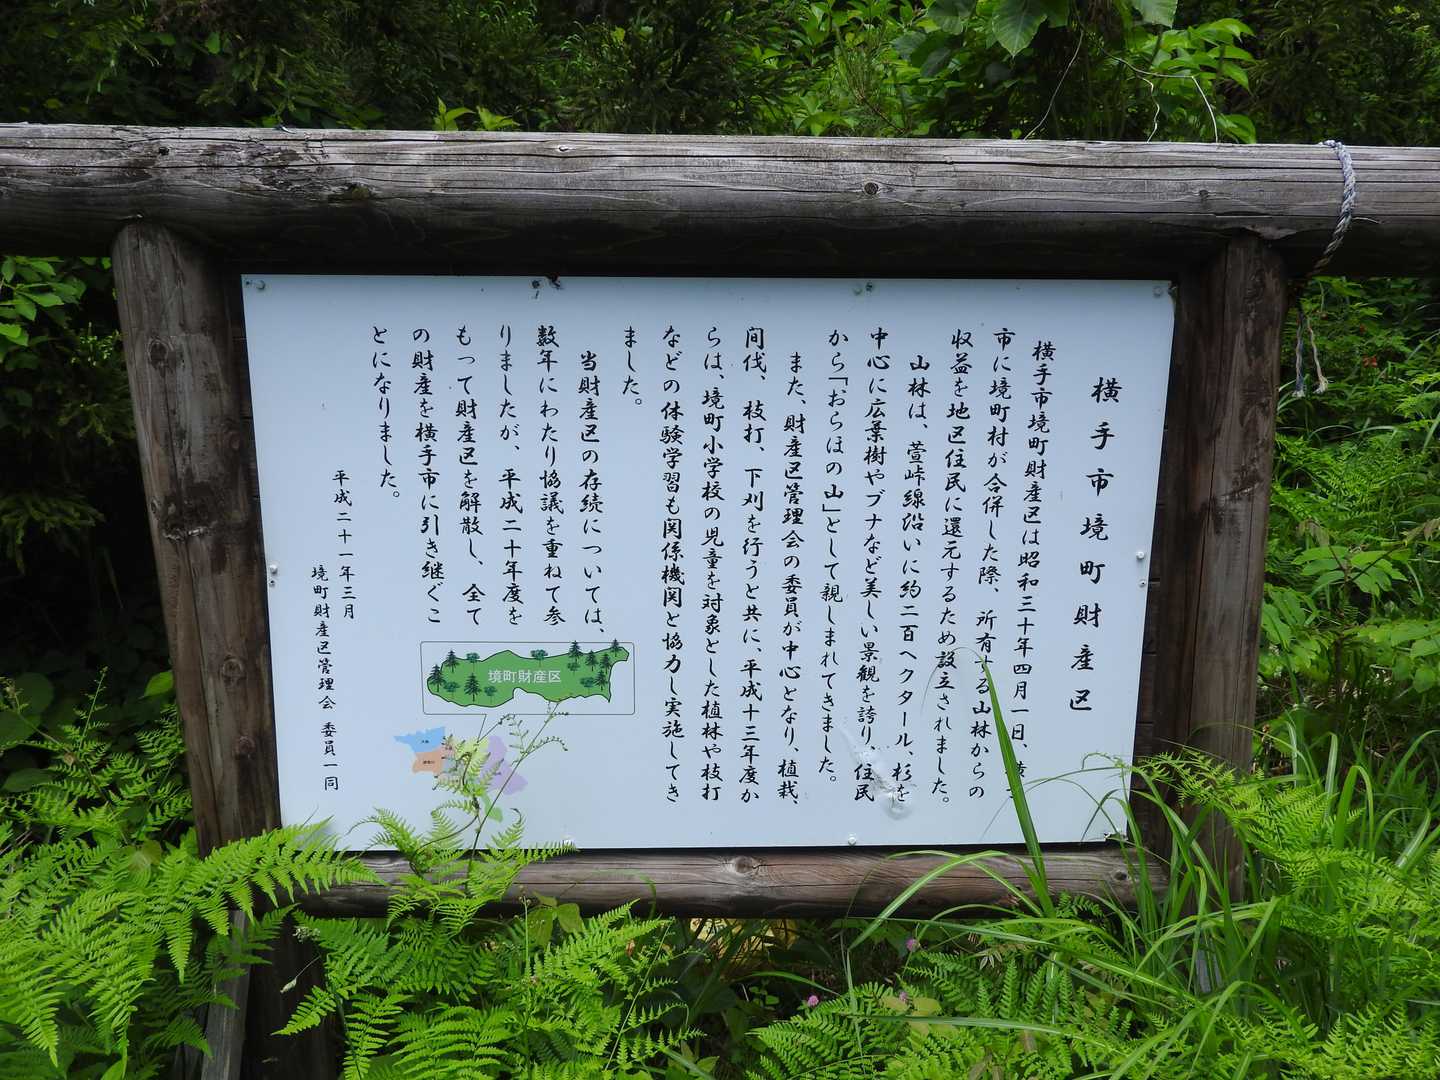 横手市境町財産区
横手市境町財産区は昭和三十年四月一日、横手
市に境町村が合併した際、所有する山林からの
収益を地区住民に還元するため設立されました。
山林は、萱峠線沿いに約二百ヘクタール、杉を
中心に広葉樹やブナなど美しい景観を誇り、住民
から「おらほの山」として親しまれてきました。
また、財産区管理会の委員が中心となり、植栽、
間伐、枝打、下刈を行うと共に、平成十三年度か
らは、境町小学校の児童を対象とした植林や枝打
などの体験学習も関係機関と協力し実施してき
ました。
当財産区の存続については、
数年にわたり協議を重ねて参
りましたが、平成二十年度を
もって財産区を解散し、全て
の財産を横手市に引き継ぐこ
とになりました。
平成二十一年三月
境町財産区管理会 委員一同
境町財産区